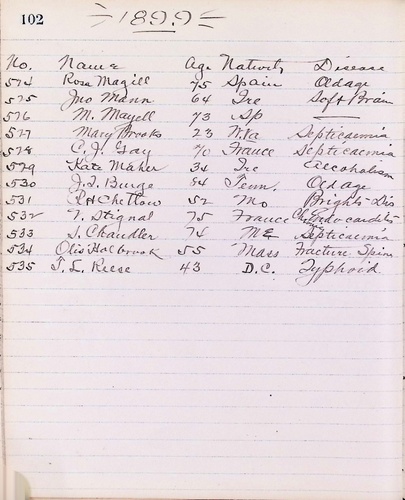 102
1899
No. Name Age Nativity Disease
524 Rosa Magill 75 Spain Old age
525 Jno Mann 64 Ire Soft Brain
526 M. Mayell 73 Sp —
527 Mary Brooks 23 W.Va Septicaemia
528 C. J. Gay 70 France Septicaemia
529 Kate Maher 34 Ire Alcoholism
530 J. T. Burge 84 Tenn. Old age
531 Chetlow 52 Mo Brights Dis
532 T. Stignal 75 France Ch Endocarditis
533 S. Chandler 74 ME Septicaemia
534 Otis Holbrook 55 Mass Fracture Spine
535 T. L. Reese 43 D.C. Typhoid